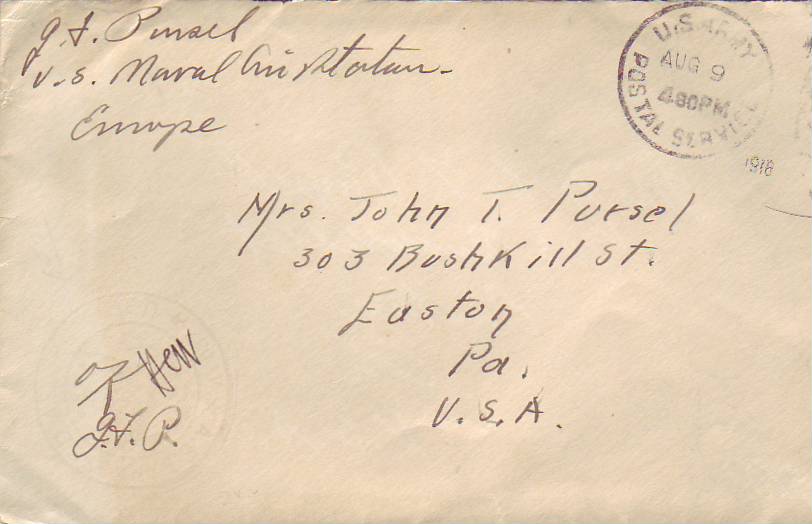 J. T. Pursel
U.S. Naval Air Station
Europe
U.S. ARMY
POSTAL SERVICE
AUG 9
480PM
1918
Mrs. John T. Pursel
303 Bushkill St.
Easton
Pa.
U.S.A.
OK
J.T.P.